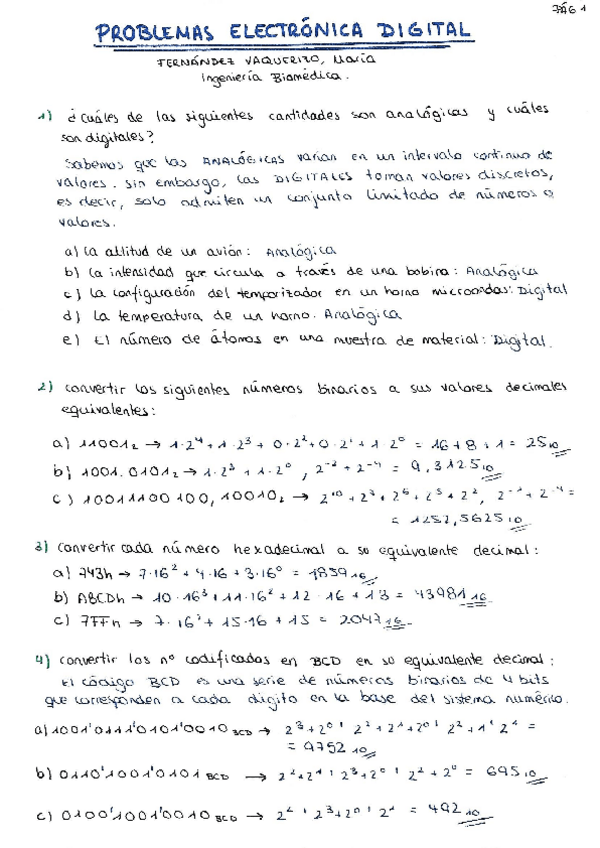 PÁG 1
PROBLEMAS ELECTRÓNICA DIGITAL
FERNÁNDEZ VAQUERIZO, María
Ingeniería Biomédica.
1) ¿Cuáles de las siguientes cantidades son analógicas y cuáles
son digitales?
Sabemos que las ANALÓGICAS varían en un intervalo continuo de
valores. Sin embargo, las DIGITALES toman valores discretos,
es decir, solo admiten un conjunto limitado de números o
valores.
a) La altitud de un avión: Analógica
b) La intensidad que circula a través de una bobina: Analógica
c) La configuración del temporizador en un horno microondas: Digital
d) La temperatura de un horno. Analógica
e) El número de átomos en una muestra de material: Digital.
2) Convertir los siguientes números binarios a sus valores decimales
equivalentes:
a) 11001₂ → 1·2⁴ + 1·2³ + 0·2² + 0·2¹ + 1·2⁰ = 16 + 8 + 1 = 25₁₀
b) 1001.0101₂ → 1·2³ + 1·2⁰, 2⁻² + 2⁻⁴ = 9,3125₁₀
c) 10011100100,10010₂ → 2¹⁰ + 2⁷ + 2⁶ + 2⁵ + 2², 2⁻¹ + 2⁻⁴ =
= 1252,5625₁₀
3) Convertir cada número hexadecimal a su equivalente decimal:
a) 743h → 7·16² + 4·16 + 3·16⁰ = 1859₁₆
b) ABCDh → 10·16³ + 11·16² + 12·16 + 13 = 43981₁₆
c) 7FFh → 7·16² + 15·16 + 15 = 2047₁₆
4) Convertir los nº codificados en BCD en su equivalente decimal:
El código BCD es una serie de números binarios de 4 bits
que corresponden a cada dígito en la base del sistema numérico.
a) 1001'0111'0101'0010 BCD → 2³+2⁰ ' 2²+2¹+2⁰ ' 2²+1 ' 2¹ =
= 9752₁₀
b) 0110'1001'0101 BCD → 2²+2¹ ' 2³+2⁰ ' 2²+2⁰ = 695₁₀
c) 0100'1001'0010 BCD → 2² ' 2³+2⁰ ' 2¹ = 492₁₀